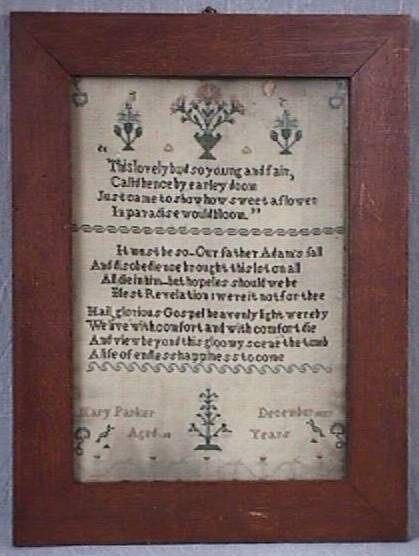 "
This lovely bud so young and fair,
Calld hence by earley doom
Just came to show how sweet a flower
In paradise would bloom."
It must be so_Our father Adams fall
And disobedience brought this lot on all
All die in him_but hopeles should we be
Blest Revelation were it not for thee
Hail, glorious Gospel heavenly light wereby
We live with comfort and with comfort die
And view beyond this gloomy scene the tomb
A life of endless happiness to come
Mary Parker December
Aged Years